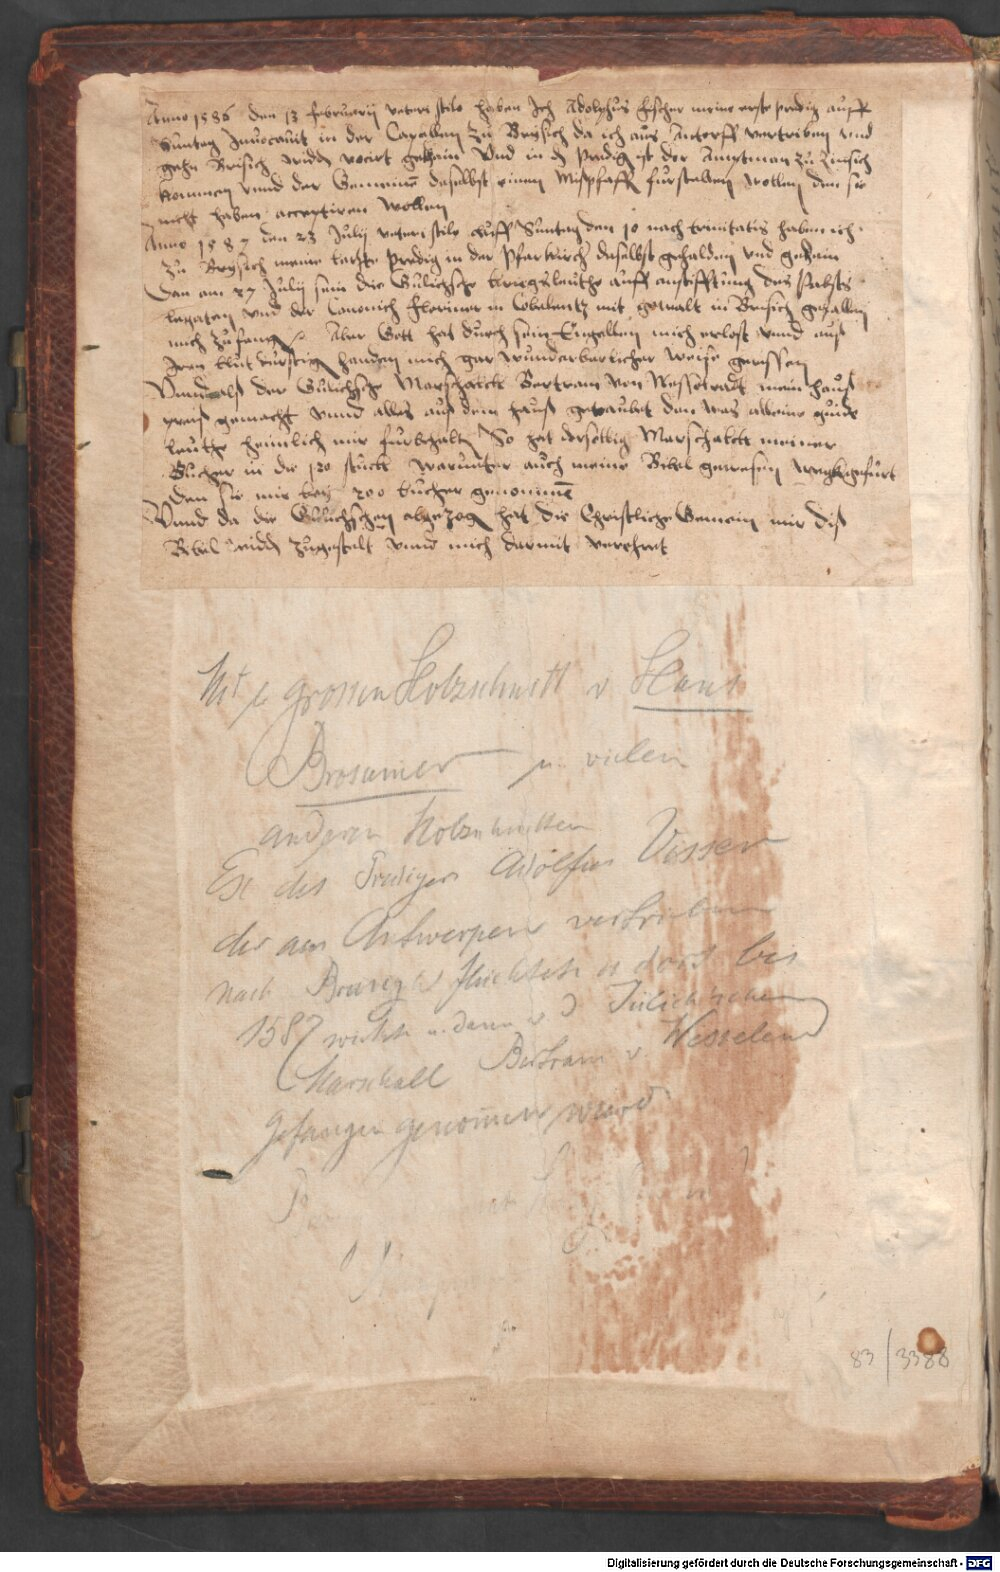 Anno 1586 den 13 Februarij veteri stilo haben Ich Adolphus Fischer meine erste predig auff
Suntag Inuocauit in der Capellen zu Brysich da ich aus Antorff vertriben vnd
gehn Brisich widd vocirt gethain Vnd in d predig ist der Amptman zu Zinsich
kommen vnnd der Gemeine daselbst einen Mispfaff furstellen wollen den sie
nicht haben acceptiren wollen
Anno 1587 den 23 Julij veteri stilo auff Suntag den 10 nach trinitatis haben ich
zu Brysich meine letste predig in der Pfarkirch daselbst gehalden vnd gethain
Dan am 27 Julij sein die Gulichsche kriegsleuthe auff anstifftung des Pabsts
legaten vnd der Canonich Floriner in Cobelentz mit gewalt in Brisich gefallen
mich zu fangen Aber Gott hat durch sein Engelken mich erlost vnnd auß
Iren blut durstigen handen mich gar wunderbarlicher weise gerissen
Vnnd alß der Gulichsche Marschalck Bertram von Nesselradt mein hauß
preiß gemacht vnnd alles auß dem hauß geraubet den was alleine guide
leuthe heimlich mir furbehalten So hat derselbig Marschalck meiner
Bucher in die 120 stuck warunter auch meine Bibel gewesen weghgefurt
den sie mir bey 200 bucher genommen
Vnnd da die Gulichschen abgezogen hat die Christliche Gemein mir diß
Bibel widd zugestelt vnnd mich darmit verehret
Mit grossen Holzschnitt v Hans
Brosamer u. vielen
anderen Holzschnitten
Ex des Predigers Adolfus Visser
der aus Antwerpen vertrieben
nach flüchtete u dort bis
1587 wirkte u. dann v d Jülichschen
Marschall Bertram v. Nesselrad
gefangen genommen wurd
83/3388
Digitalisierung gefördert durch die Deutsche Forschungsgemeinschaft - DFG